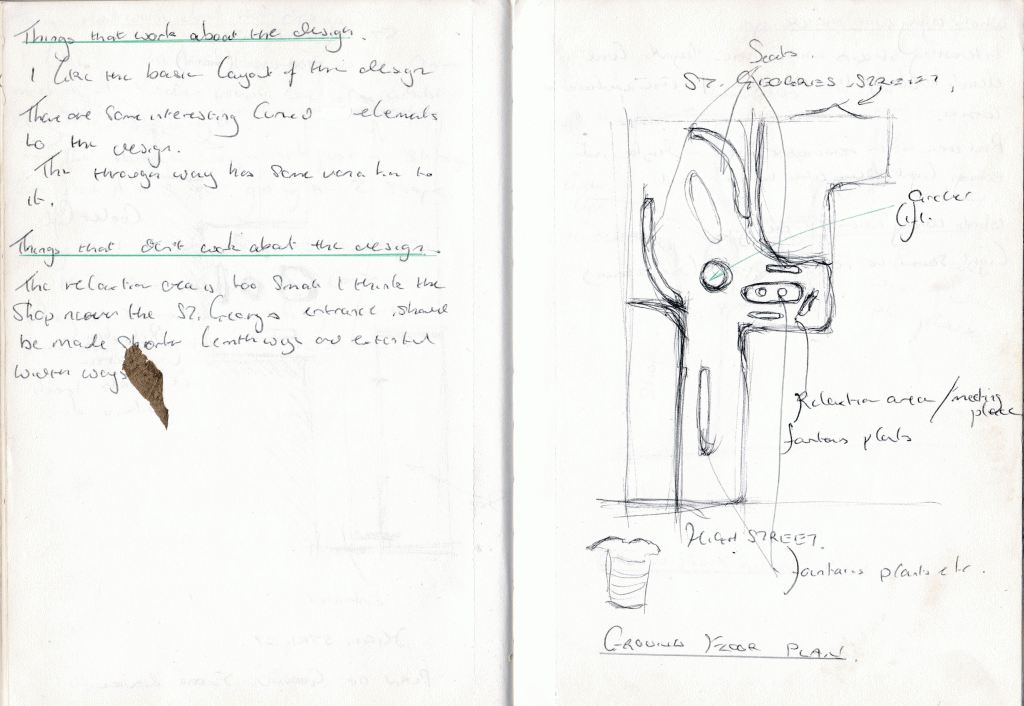 Things that work about the design.
I like the basic layout of the design
There are some interesting curved elements
to the design.
The through way has some variation to
it.
Things that don't work about the design.
The relaxtion area is too small I think the
shop nearer the ST. Georges entrance should
be made shorter lenthways and extended
width ways
Seats
ST. GEOGRIES STREET,
Circular
lift.
Relaxtion area / meeting
place
fantans plants
HIGH STREET.
fantains plants etc.
GROUND FLOOR PLAN.